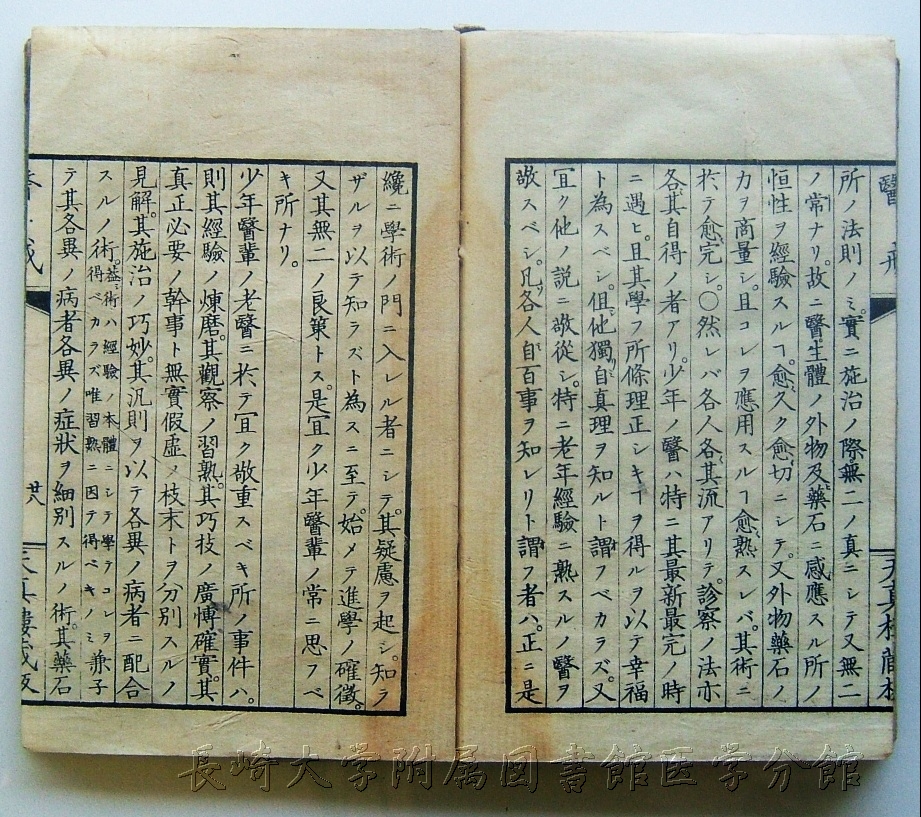 所ノ法則ノミ。實ニ施治ノ際無二ノ真ニシテ又無二
ノ常ナリ。故ニ醫生體ノ外物及藥石ニ感應スル所ノ
恒性ヲ經驗スルヿ。愈久ク愈切ニシテ。又外物藥石ノ
力ヲ商量シ。且コレヲ應用スルヿ愈熟スレバ。其術ニ
於テ愈完シ。○然レバ各人各其流アリテ。診察ノ法亦
各其自得ノ者アリ。少年ノ醫ハ特ニ其最新最完ノ時
ニ遇ヒ。且其學フ所條理正シキヿヲ得ルヲ以テ幸福
ト為スベシ。但他獨自真理ヲ知ルト謂フベカラズ。又
冝ク他ノ説ニ敬從シ。特ニ老年經驗ニ熟スルノ醫ヲ
敬スベシ。凡各人自百事ヲ知レリト謂フ者ハ。正ニ是
纔ニ學術ノ門ニ入レル者ニシテ。其疑慮ヲ起シ。知ラ
ザルヲ以テ知ラズト為スニ至テ。始メテ進學ノ確徴。
又其無二ノ良策トス。是冝ク少年醫輩ノ常ニ思フベ
キ所ナリ。
少年醫輩ノ老醫ニ於テ冝ク敬重スベキ所ノ事件ハ。
則其經驗ノ煉磨。其觀察ノ習熟。其巧技ノ廣愽確實。其
真正必要ノ幹事ト無實假虚ノ枝末トヲ分別スルノ
見解。其施治ノ巧妙。其汎則ヲ以テ各異ノ病者ニ配合
スルノ術。蓋術ハ經驗ノ本體ニシテ學テコレヲ
得ベカラズ唯習熟ニ因テ得ベキノミ兼子
テ其各異ノ病者各異ノ症狀ヲ細別スルノ術。其藥石
醫戒
廿八
天真樓藏板
長崎大学附属図書館医学分館